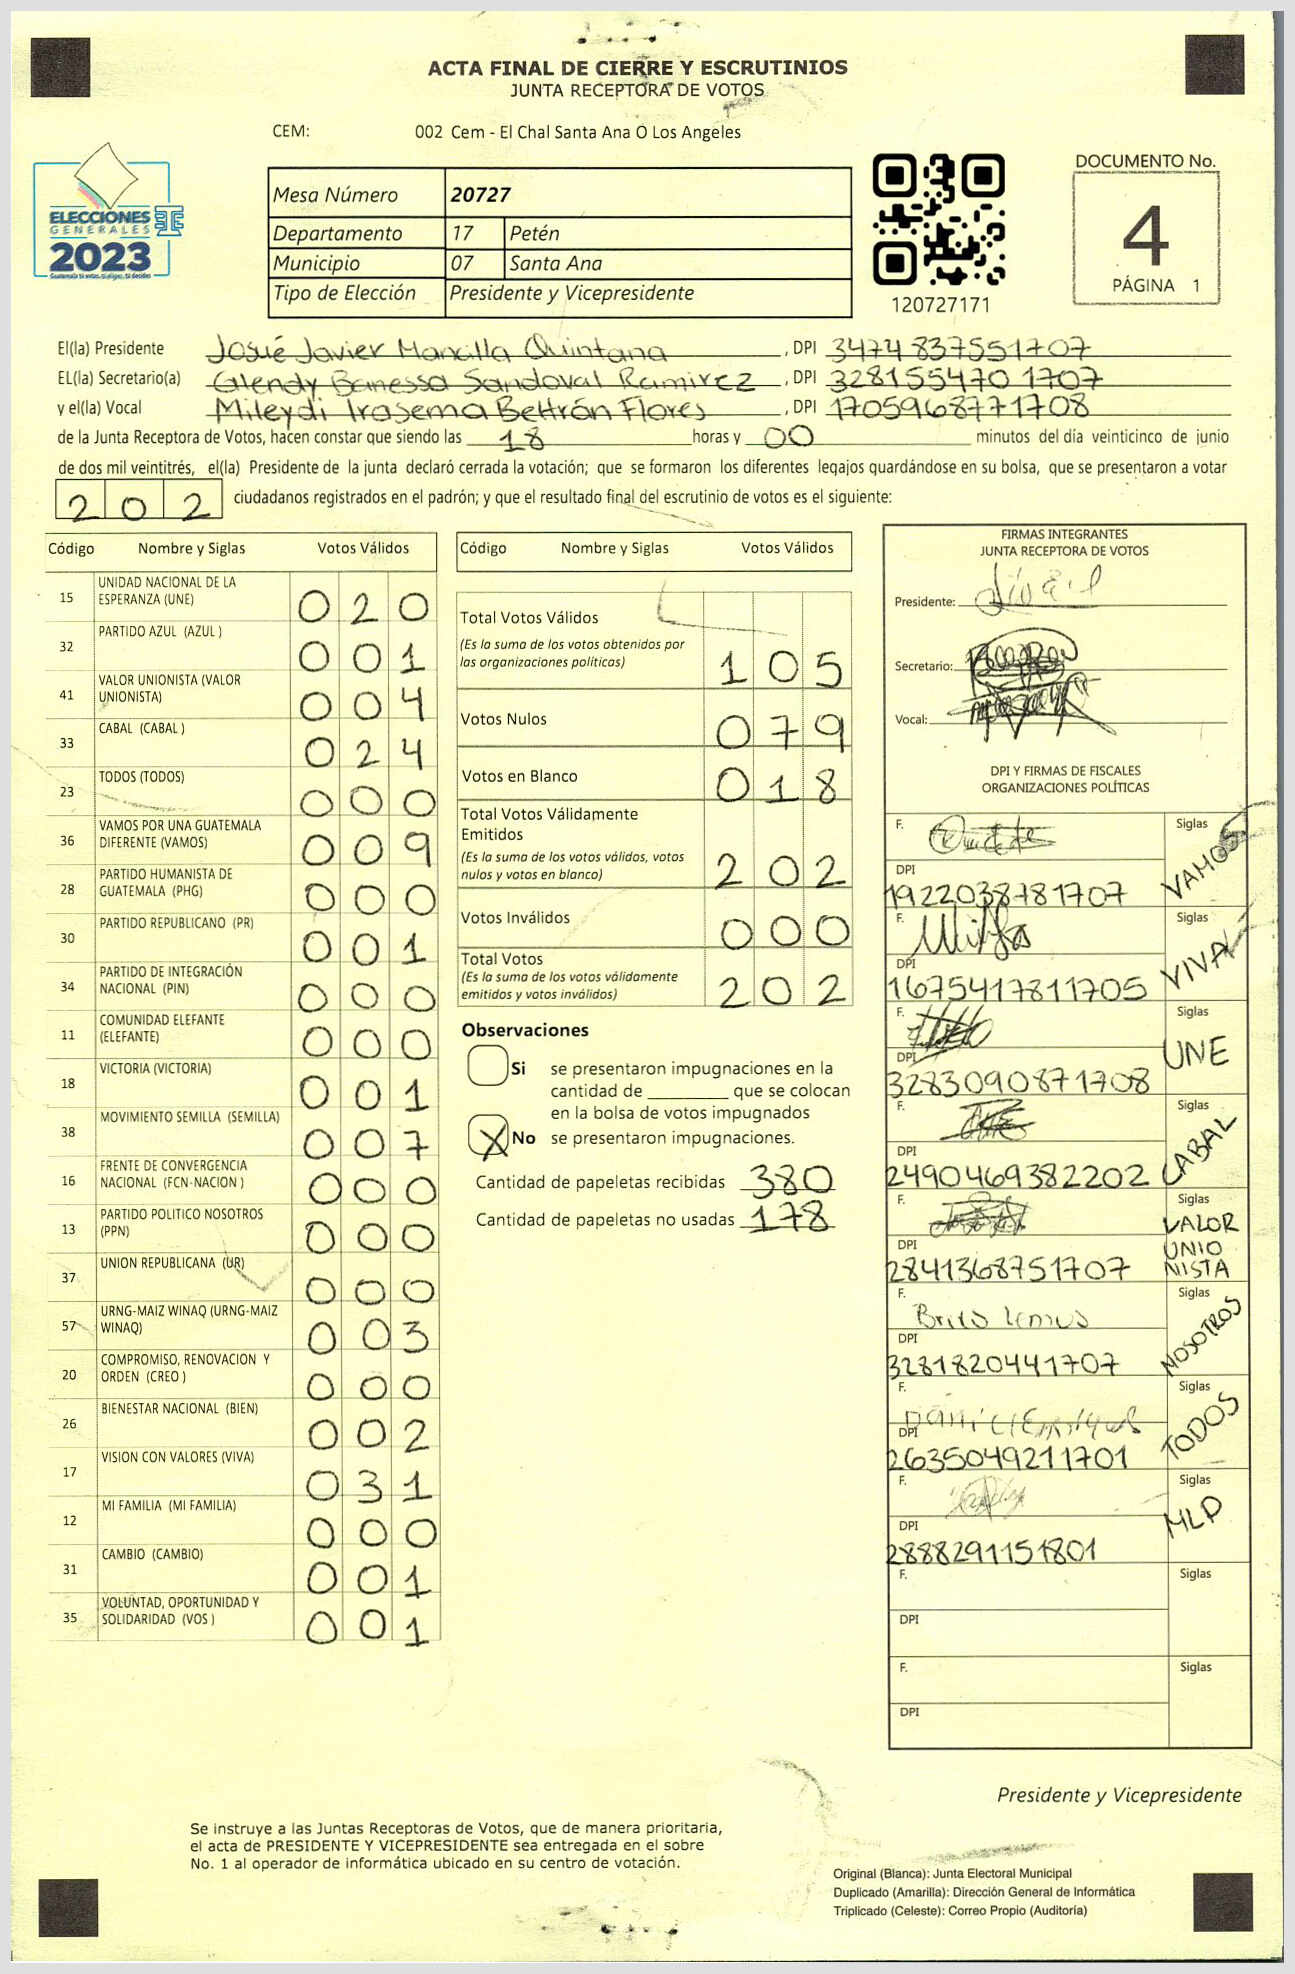 ACTA FINAL DE CIERRE Y ESCRUTINIOS
JUNTA RECEPTORA DE VOTOS
CEM: 002 Cem - El Chal Santa Ana O Los Angeles
ELECCIONES
GENERALES
2023
Mesa Número 20727
Departamento 17 Petén
Municipio 07 Santa Ana
Tipo de Elección Presidente y Vicepresidente
120727171
DOCUMENTO No.
4
PÁGINA 1
El(la) Presidente Josué Javier Mancilla Quintana, DPI 3474837551707
EL(la) Secretario(a) Glendy Banessa Sandoval Ramirez, DPI 3281554701707
y el(la) Vocal Mileydi Irasema Beltrán Flores, DPI 1705968771708
de la Junta Receptora de Votos, hacen constar que siendo las 18 horas y 00 minutos del día veinticinco de junio
de dos mil veintitrés, el(la) Presidente de la junta declaró cerrada la votación; que se formaron los diferentes legajos guardándose en su bolsa, que se presentaron a votar
202 ciudadanos registrados en el padrón; y que el resultado final del escrutinio de votos es el siguiente:
Código Nombre y Siglas Votos Válidos
15 UNIDAD NACIONAL DE LA ESPERANZA (UNE) 020
32 PARTIDO AZUL (AZUL ) 001
41 VALOR UNIONISTA (VALOR UNIONISTA) 004
33 CABAL (CABAL ) 024
23 TODOS (TODOS) 000
36 VAMOS POR UNA GUATEMALA DIFERENTE (VAMOS) 009
28 PARTIDO HUMANISTA DE GUATEMALA (PHG) 000
30 PARTIDO REPUBLICANO (PR) 001
34 PARTIDO DE INTEGRACIÓN NACIONAL (PIN) 000
11 COMUNIDAD ELEFANTE (ELEFANTE) 000
18 VICTORIA (VICTORIA) 001
38 MOVIMIENTO SEMILLA (SEMILLA) 007
16 FRENTE DE CONVERGENCIA NACIONAL (FCN-NACION ) 000
13 PARTIDO POLITICO NOSOTROS (PPN) 000
37 UNION REPUBLICANA (UR) 000
57 URNG-MAIZ WINAQ (URNG-MAIZ WINAQ) 003
20 COMPROMISO, RENOVACION Y ORDEN (CREO ) 000
26 BIENESTAR NACIONAL (BIEN) 002
17 VISION CON VALORES (VIVA) 031
12 MI FAMILIA (MI FAMILIA) 000
31 CAMBIO (CAMBIO) 001
35 VOLUNTAD, OPORTUNIDAD Y SOLIDARIDAD (VOS ) 001
Código Nombre y Siglas Votos Válidos
Total Votos Válidos
(Es la suma de los votos obtenidos por
las organizaciones políticas) 105
Votos Nulos 079
Votos en Blanco 018
Total Votos Válidamente
Emitidos
(Es la suma de los votos válidos, votos
nulos y votos en blanco) 202
Votos Inválidos 000
Total Votos
(Es la suma de los votos válidamente
emitidos y votos inválidos) 202
Observaciones
Si se presentaron impugnaciones en la
cantidad de ________ que se colocan
en la bolsa de votos impugnados
X No se presentaron impugnaciones.
Cantidad de papeletas recibidas 380
Cantidad de papeletas no usadas 178
FIRMAS INTEGRANTES
JUNTA RECEPTORA DE VOTOS
Presidente:
Secretario:
Vocal:
DPI Y FIRMAS DE FISCALES
ORGANIZACIONES POLÍTICAS
F. Siglas VAMOS
DPI 1922038781707
F. Siglas VIVA
DPI 1675417811705
F. Siglas UNE
DPI 3283090871708
F. Siglas CABAL
DPI 2490469382202
F. Siglas VALOR UNIO NISTA
DPI 2841368751707
F. Siglas NOSOTROS
DPI 3281820441707
F. Siglas TODOS
DPI 2635049211701
F. Siglas MLP
DPI 2888291151801
F. Siglas
DPI
F. Siglas
DPI
Presidente y Vicepresidente
Se instruye a las Juntas Receptoras de Votos, que de manera prioritaria,
el acta de PRESIDENTE Y VICEPRESIDENTE sea entregada en el sobre
No. 1 al operador de informática ubicado en su centro de votación.
Original (Blanca): Junta Electoral Municipal
Duplicado (Amarilla): Dirección General de Informática
Triplicado (Celeste): Correo Propio (Auditoría)